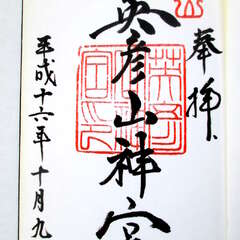 奉拝
英彦山神宮
平成十六年十月九